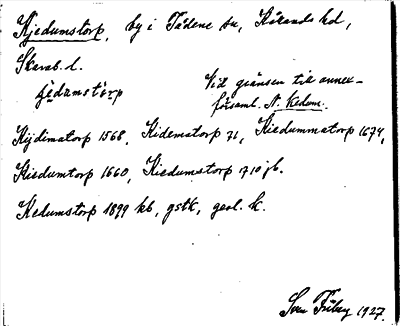 Kjedumstorp, by i Tådene sn, Kållands hd,
Skarab. l.
Vid gränsen till annex-
församl. N. Kedum.
Kijdimatorp 1568, Kidematorp 71, Kiedummatorp 1674,
Kiedumtorp 1660, Kiedumstorp 1710 jb.
Kedumstorp 1899 kb, gstk, geol. k.
1927.